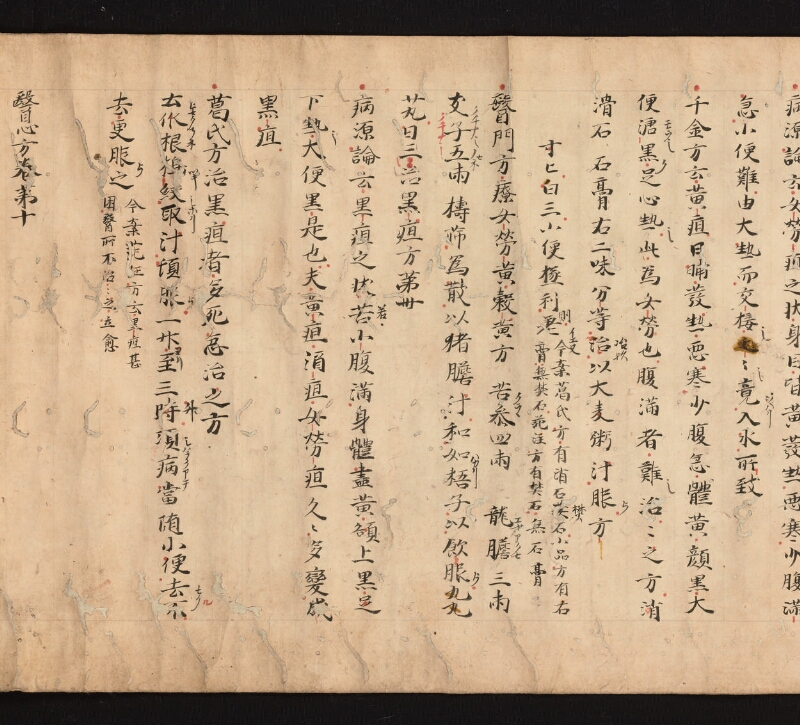 病源論云女勞疸之狀身目皆黃發熱惡寒少腹滿
急小便難由大熱而交接〻竟入水所致
千金方云黃疸日晡發熱惡寒少腹急體黃顏黑大
便溏黑足心熱此為女勞也腹滿者難治〻之方消
滑石 石膏右二味分等治以大麦粥汁服方
寸匕日三小便極利則
今案葛氏方有消石
膏無
范汪方有
石無石膏
醫門方療女勞黃穀黃方 苦参四兩 龍膽三兩
支子五兩擣篩為散以猪膽汁和如梧子以飲服
丸日三治黑疸方第卅
病源論云黑疸之狀苦小腹滿身體盡黃額上黑足
下熱大便黑是也夫黃疸消疸女勞疸久〻多變成
黑疸
葛氏方治黑疸者多死急治之方
根
取汁頓服一升至三時須病當随小便去不
去更服之
今案范汪方云黑疸甚
困醫所不治
立愈
醫心方卷第十